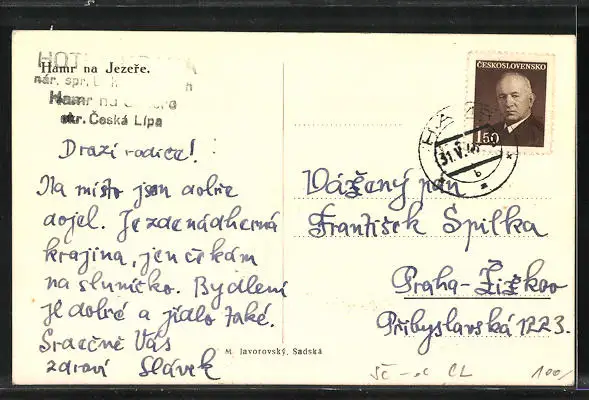 Hamr na Jezeře.
HOT
nár. spr.
Hamr na Jezeře
okr. Česká Lípa
Drazí rodiče!
Na místo jsem dobře
dojel. Je zde nádherná
krajina, jen čekám
na sluníčko. Bydlení
je dobré a jídlo také.
Srdečně Vás
zdraví Slávek
M. Javorovský, Sadská
ČESKOSLOVENSKO
1.50
31.V.48
b
Vážený pan
František Spilka
Praha-Žižkov
Přibyslavská 1223.
100/